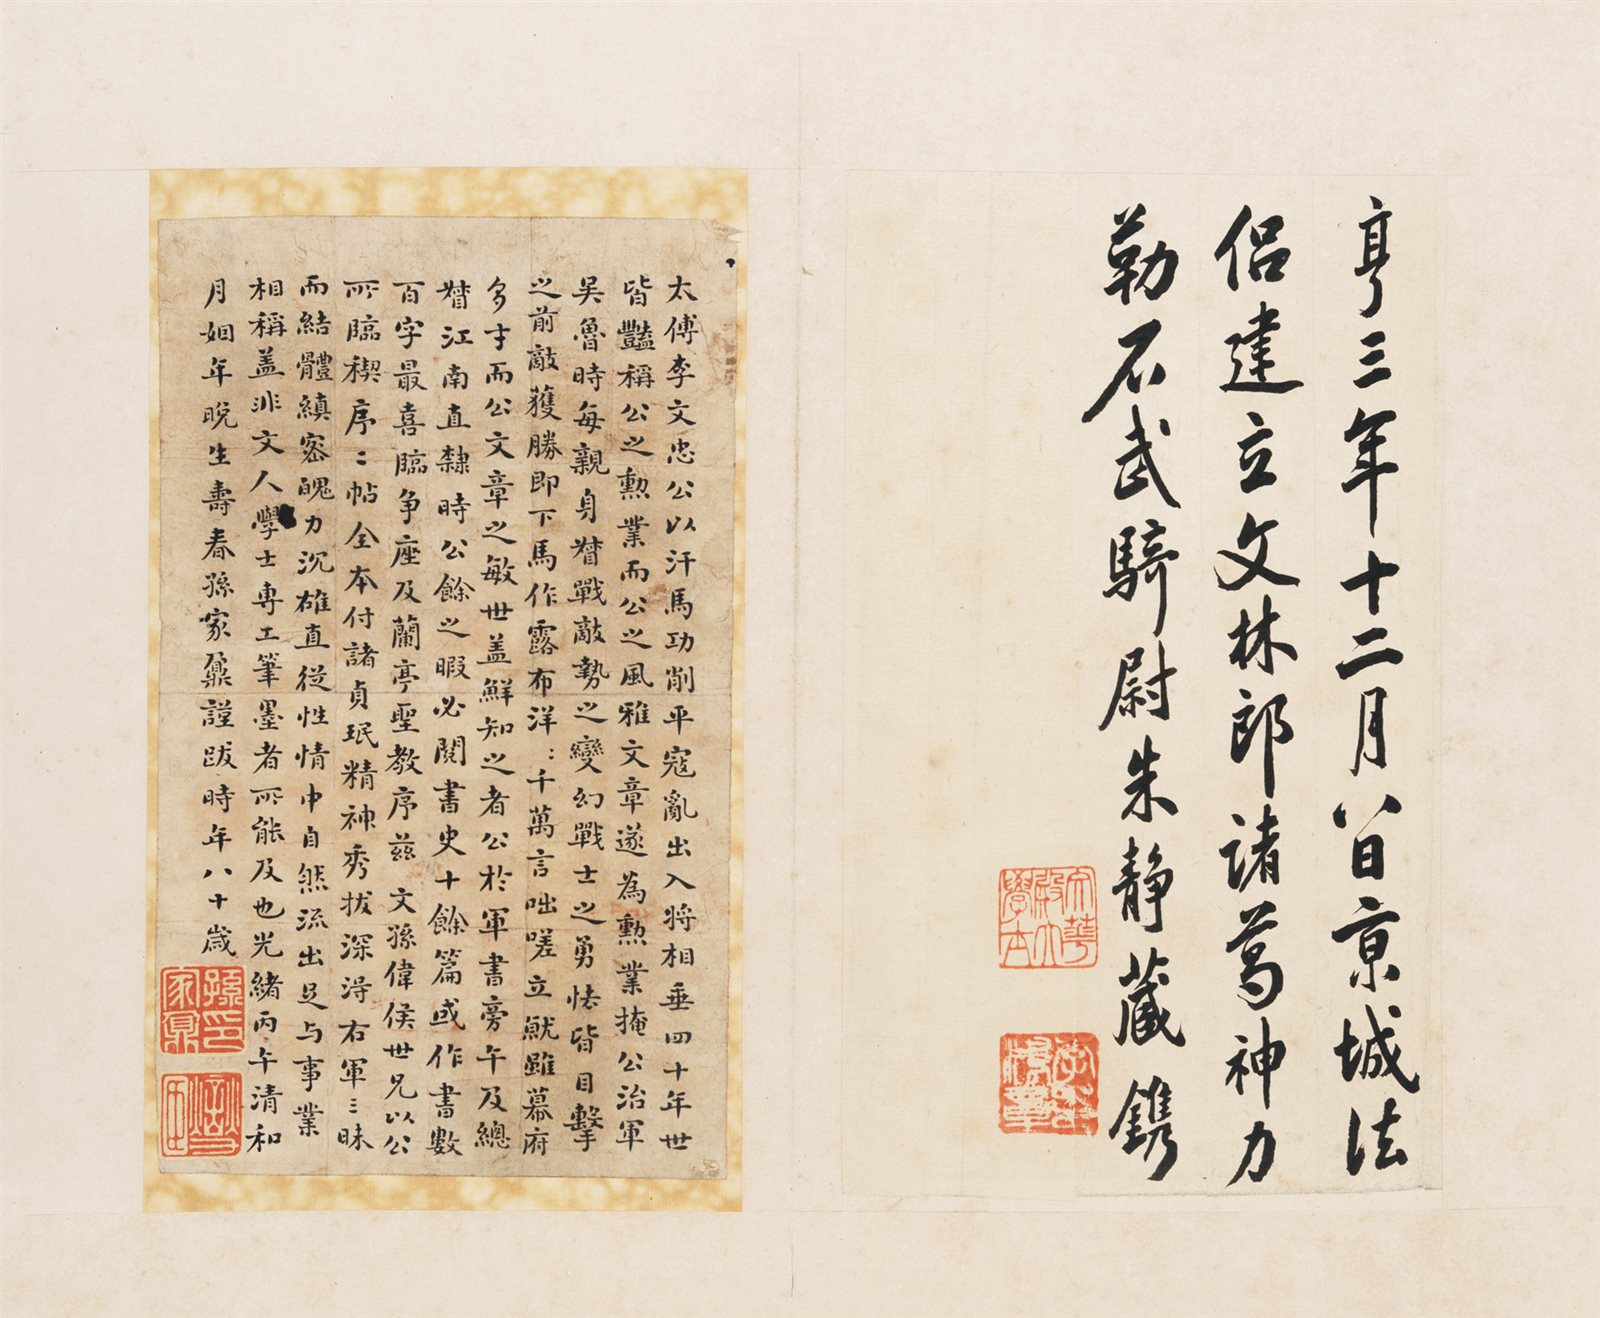 亨三年十二月八日京城法
侣建立文林郎諸葛神力
勒石武騎尉朱静藏鐫
文華殿大學士
太傅李文忠公以汗馬功削平寇亂出入將相垂四十年世
皆豔稱公之勲業而公之風雅文章遂為勲業掩公治軍
吴魯時每親身督戰敵勢之變幻戰士之勇怯皆目擊
之前敵獲勝即下馬作露布洋:千萬言咄嗟立就雖幕府
多才而公文章之敏世盖鮮知之者公於軍書旁午及總
督江南直隸時公餘之暇必閱書史十餘篇或作書數
百字最喜臨争座及蘭亭聖教序兹文孫偉侯世兄以公
所臨稧序:帖全本付諸貞珉精神秀拔深得右軍三昧
而結體縝密魄力沉雄直從性情中自然流出足与事業
相稱盖非文人學士專工筆墨者所能及也光緒丙午清和
月姻年晚生壽春孫家鼐謹跋時年八十歲
孫家鼐印